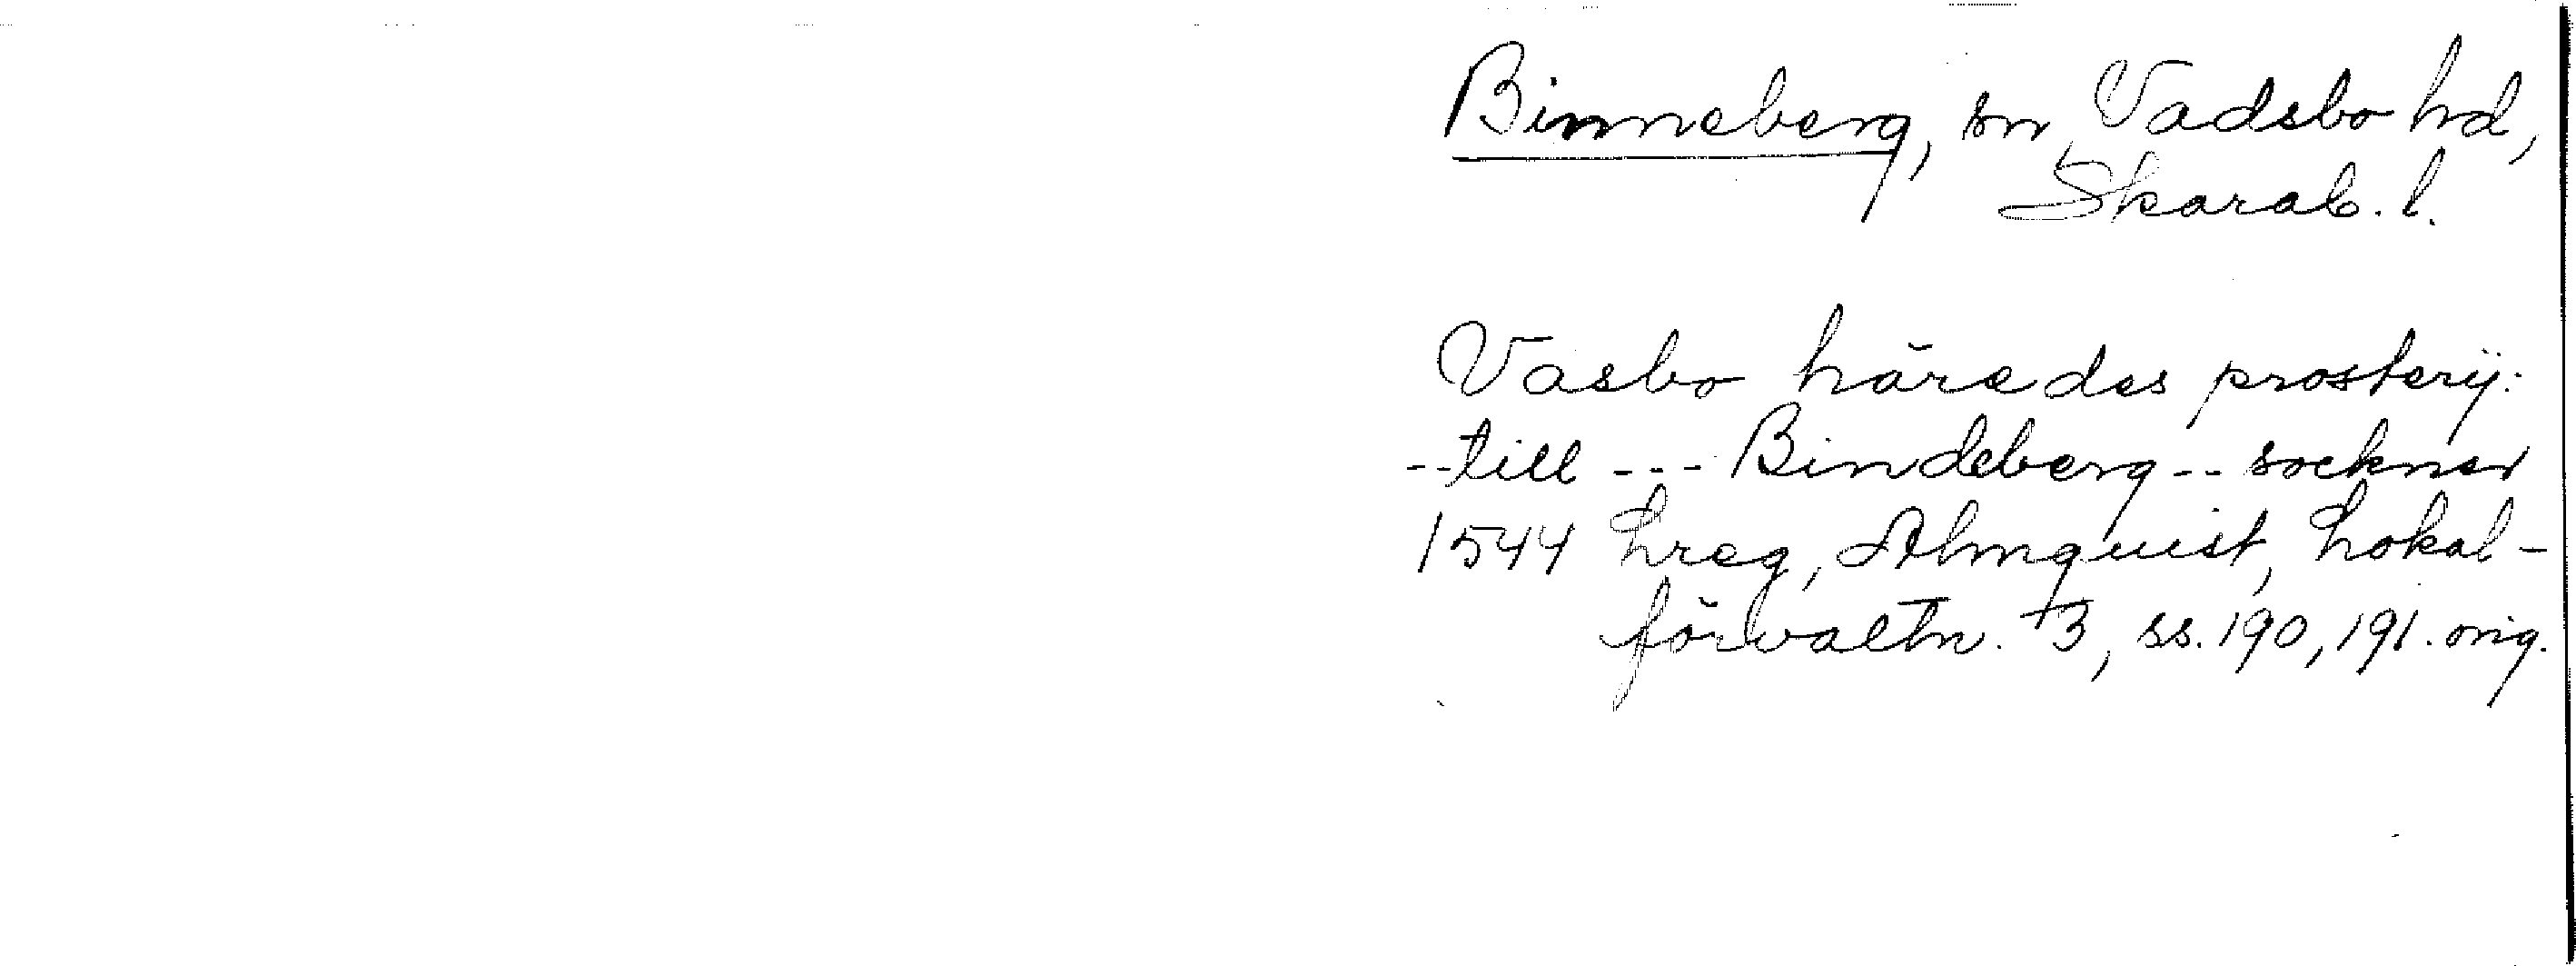 Binneberg, sn, Vadsbo hd,
Skarab. l.
Vasbo härades prosterÿ:
-- till --- Bindeberg -- sockner
1544 Lreg, Almquist, Lokal-
förvaltn. 3, ss. 190, 191. orig.